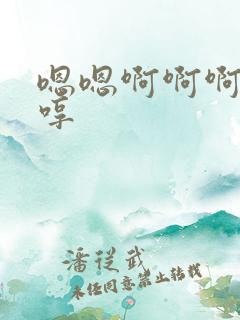 嗯嗯啊啊啊
哼
潘從武
未经同意禁止转载